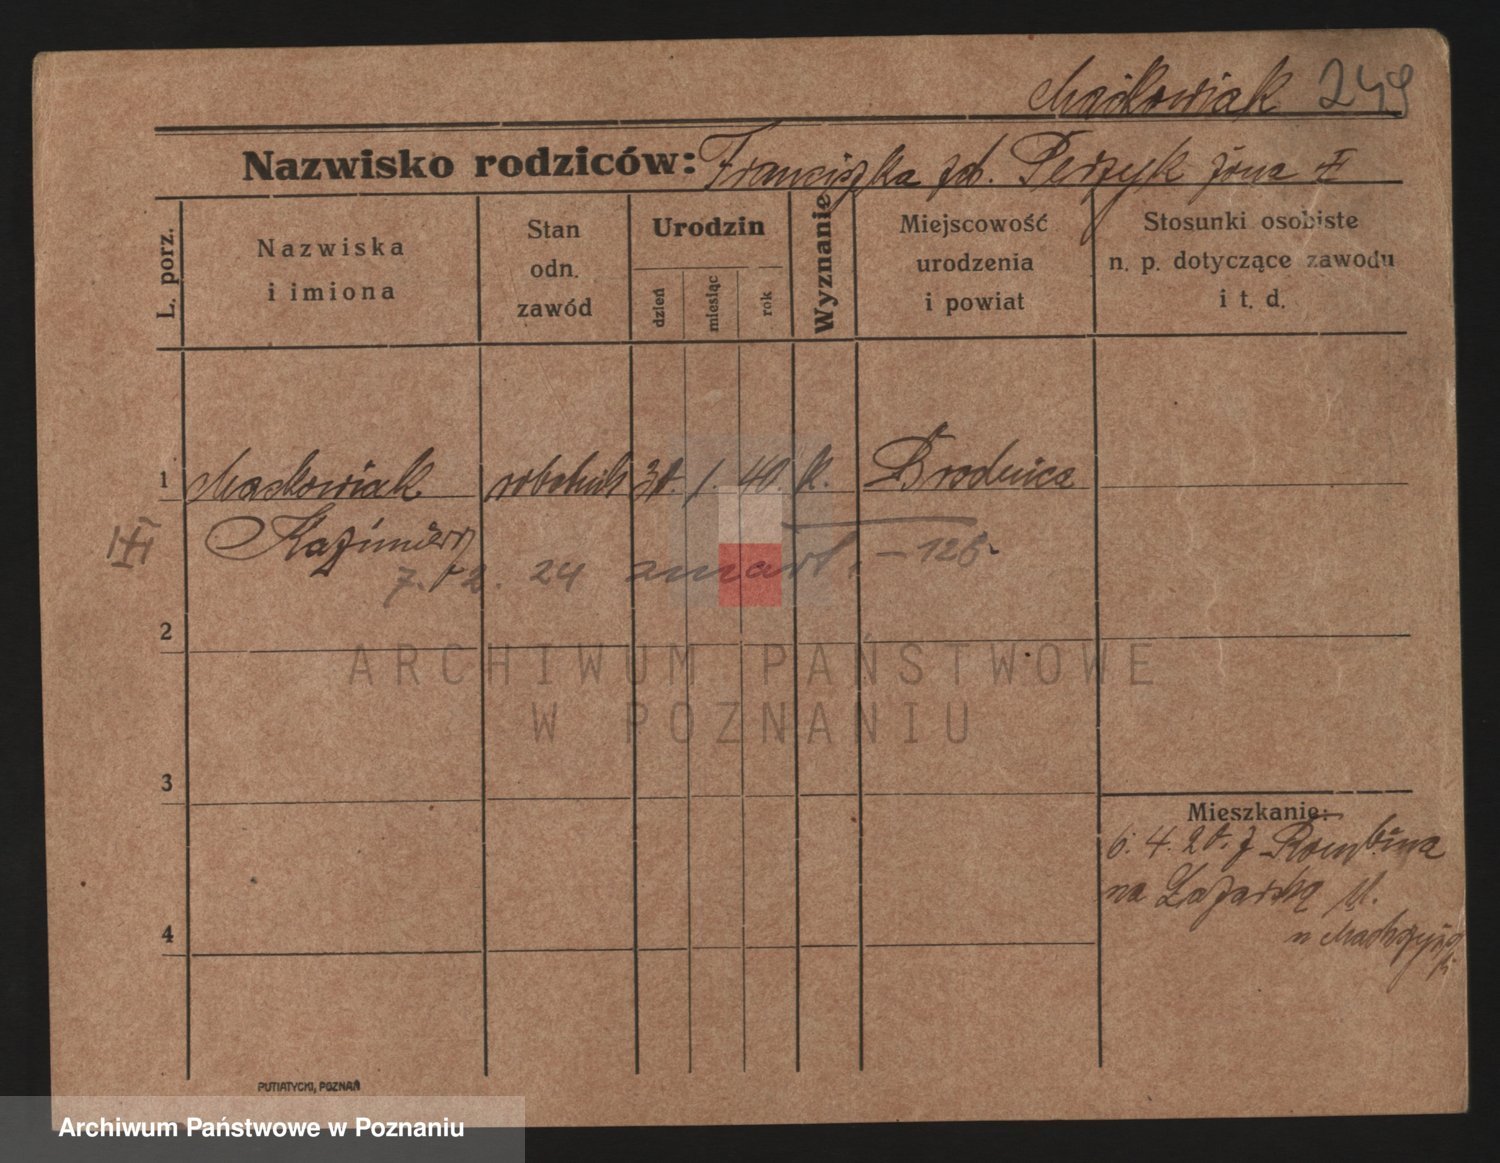 Maćkowiak 249
Nazwisko rodziców: Franciszka zd. Perzyk żona
L. porz.
Nazwiska
i imiona
Stan
odn.
zawód
Urodzin
dzień
miesiąc
rok
Wyznanie
Miejscowość
urodzenia
i powiat
Stosunki osobiste
n. p. dotyczące zawodu
i t. d.
1 Maćkowiak robotnik 30. 1. 40. k. Brodnica
Kazimierz
7. 12. 24 zmarł. – 126.
2
3
4
Mieszkanie:
6. 4. 20. z Rombina
na Łazarską 11.
u
PUTIATYCKI, POZNAŃ
ARCHIWUM PAŃSTWOWE
W POZNANIU
Archiwum Państwowe w Poznaniu